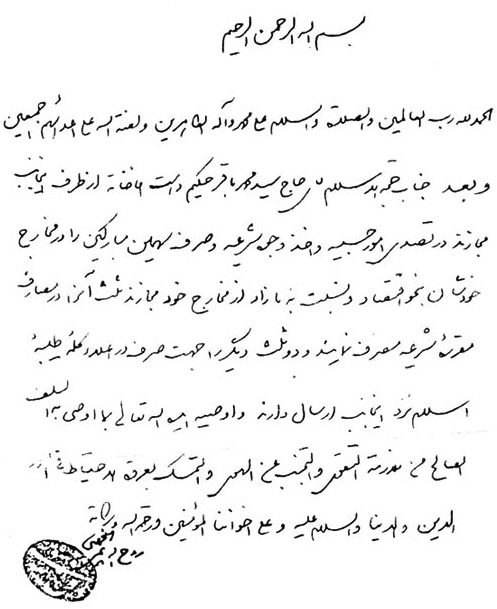 بسم الله الرحمن الرحیم
الحمد لله رب العالمین والصلوة والسلام علی محمد وآله الطاهرین ولعنة الله علی اعدائهم اجمعین
وبعد جناب حجة الاسلام آقای حاج سید محمد باقر حکیم دامت افاضاته از طرف اینجانب
مجازند در تصدی امور حسبیه و اخذ وجوه شرعیه و صرف سهمین مبارکین را در مخارج
خودشان بنحو اقتصاد و نسبت به مازاد از مخارج خود مجازند ثلث آنرا در مصارف
مقرره شرعیه مصرف نمایند و دو ثلث دیگر را جهت صرف در اعلاء کلمه طیبه
اسلام نزد اینجانب ارسال دارند واوصیه ایده الله تعالی بما اوصی به السلف
الصالح من ملازمة التقوی والتجنب عن الهوی والتمسک بعروة الاحتیاط فی امور
الدین والدنیا والسلام علیه وعلی اخواننا المؤمنین ورحمة الله وبرکاته
روح الله الموسوی